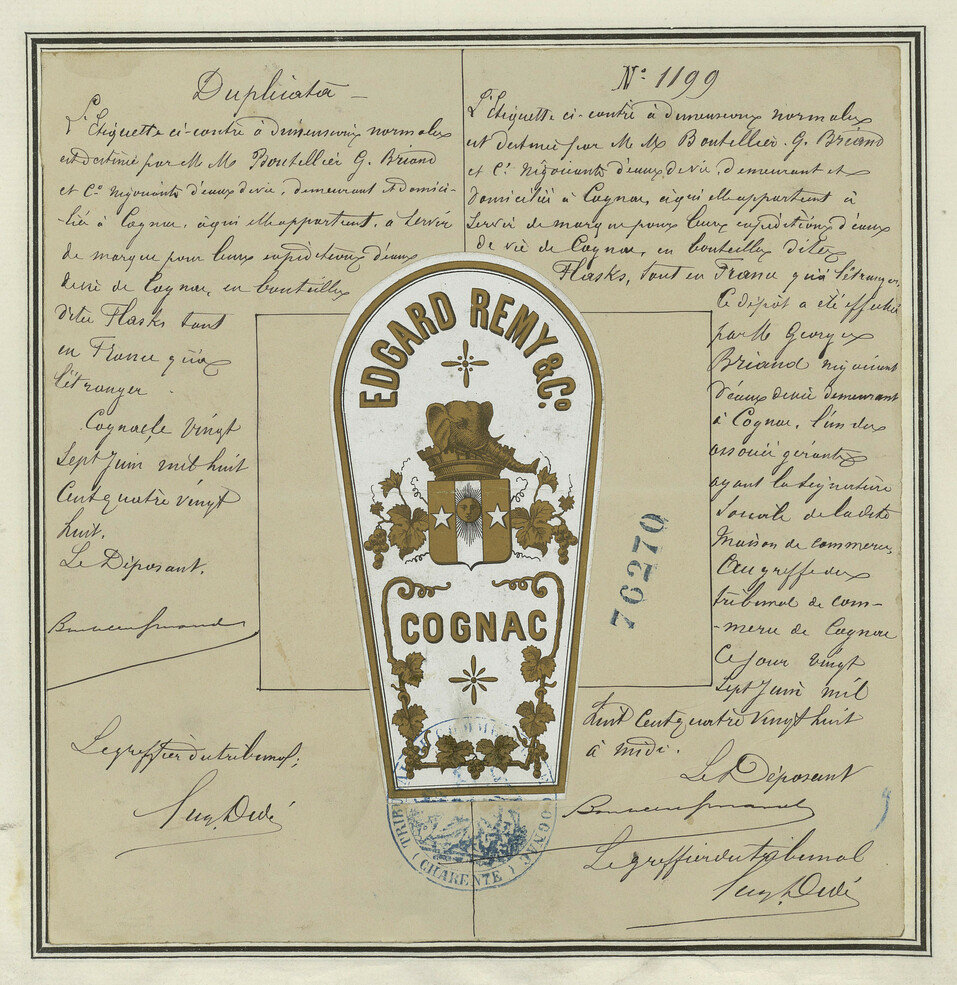 Duplicata
L'Etiquette ci-contre à dimensions normales
est destinée par M M Boutellier G. Briand
et Cº Négociants d'eaux de vie, demeurant & domici-
-liés à Cognac, à qui elle appartient, à servir
de marque pour leurs expéditions d'eaux
de vie de Cognac, en bouteilles
dites Flasks tant
en France qu'à
l'étranger.
Cognac le vingt
Sept Juin mil huit
Cent quatre vingt
huit.
Le Déposant.
Le greffier du tribunal,
Nº 1199
L'Etiquette ci-contre à dimensions normales
est destinée par M M Boutellier. G. Briand
et Cº Négociants d'eaux de vie, demeurant et
domiciliés à Cognac, à qui elle appartient à
servir de marque pour leurs expéditions d'eaux
de vie de Cognac, en bouteilles dites
Flasks, tant en France qu'à l'étranger.
Ce dépôt a été effectué
par M Georges
Briand négociant
d'eaux de vie demeurant
à Cognac, l'un des
associés gérants
ayant la signature
sociale de la dite
Maison de commerce,
Au greffe du
tribunal de com-
-merce de Cognac
Ce jour vingt
Sept Juin mil
huit Cent quatre vingt huit
à midi.
Le Déposant
Le greffier du tribunal
EDGARD REMY & Cº
COGNAC
76270
TRIBUNAL DE COMMERCE COGNAC
(CHARENTE)